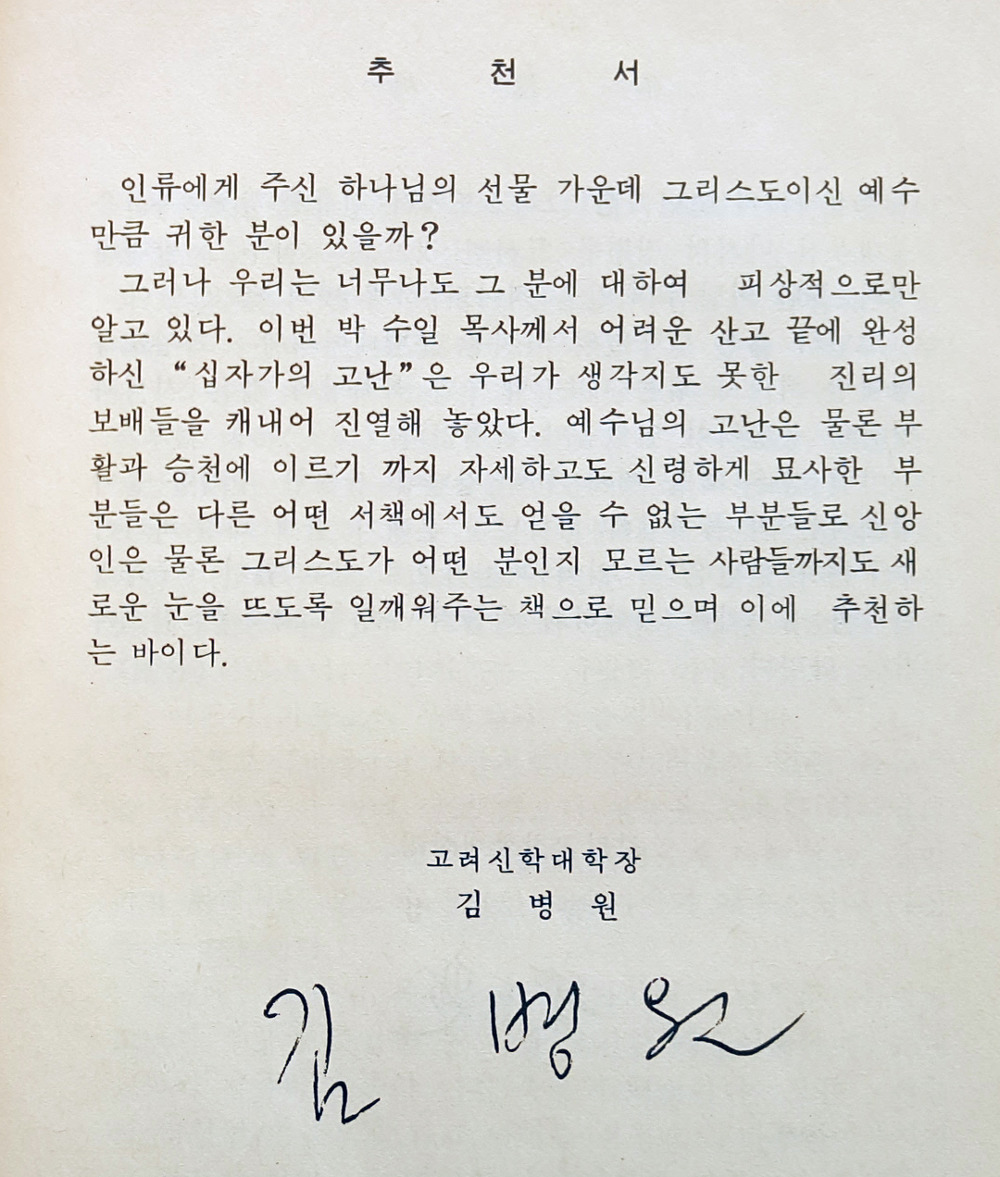 추 천 서
인류에게 주신 하나님의 선물 가운데 그리스도이신 예수
만큼 귀한 분이 있을까?
그러나 우리는 너무나도 그 분에 대하여 피상적으로만
알고 있다. 이번 박 수일 목사께서 어려운 산고 끝에 완성
하신 “십자가의 고난”은 우리가 생각지도 못한 진리의
보배들을 캐내어 진열해 놓았다. 예수님의 고난은 물론 부
활과 승천에 이르기 까지 자세하고도 신령하게 묘사한 부
분들은 다른 어떤 서책에서도 얻을 수 없는 부분들로 신앙
인은 물론 그리스도가 어떤 분인지 모르는 사람들까지도 새
로운 눈을 뜨도록 일깨워주는 책으로 믿으며 이에 추천하
는 바이다.
고려신학대학장
김 병 원
김 병 원